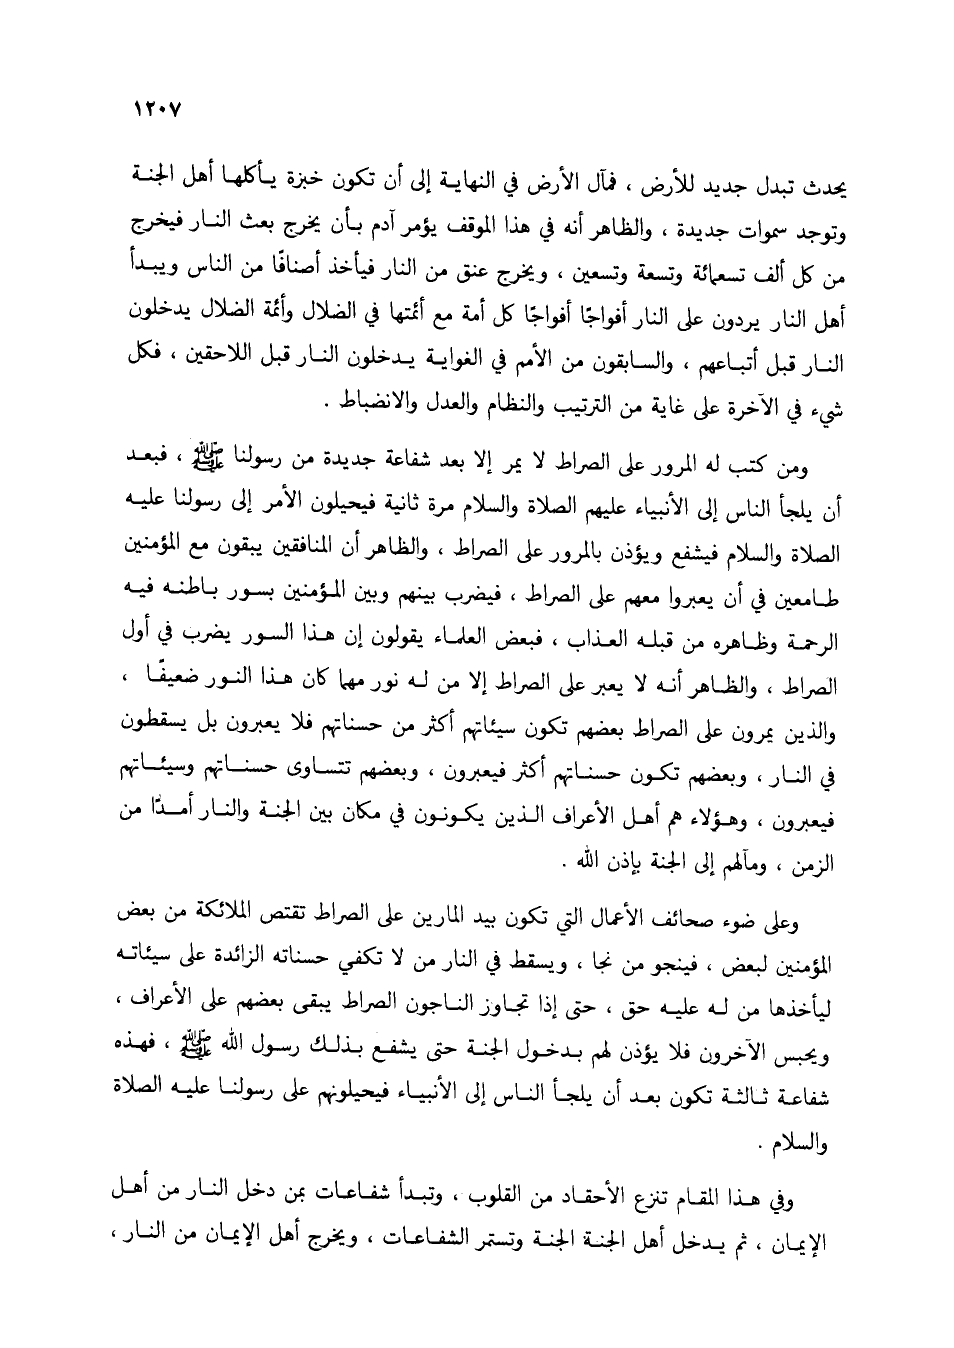 ١٢٠٧
يحدث تبدل جديد للأرض ، فمآل الأرض في النهاية إلى أن تكون خبزة يأكلها أهل الجنة
وتوجد سموات جديدة ، والظاهر أنه في هذا الموقف يؤمر آدم بأن يخرج بعث النار فيخرج
من كل ألف تسعمائة وتسعة وتسعين ، ويخرج عنق من النار فيأخذ أصنافًا من الناس ويبدأ
أهل النار يردون على النار أفواجًا أفواجًا كل أمة مع أئمتها في الضلال وأئمة الضلال يدخلون
النار قبل أتباعهم ، والسابقون من الأمم في الغواية يدخلون النار قبل اللاحقين ، فكل
شيء في الآخرة على غاية من الترتيب والنظام والعدل والانضباط .
ومن كتب له المرور على الصراط لا يمر إلا بعد شفاعة جديدة من رسولنا ﷺ ، فبعد
أن يلجأ الناس إلى الأنبياء عليهم الصلاة والسلام مرة ثانية فيحيلون الأمر إلى رسولنا عليه
الصلاة والسلام فيشفع ويؤذن بالمرور على الصراط ، والظاهر أن المنافقين يبقون مع المؤمنين
طامعين في أن يعبروا معهم على الصراط ، فيضرب بينهم وبين المؤمنين بسور باطنه فيه
الرحمة وظاهره من قبله العذاب ، فبعض العلماء يقولون إن هذا السور يضرب في أول
الصراط ، والظاهر أنه لا يعبر على الصراط إلا من له نور مهما كان هذا النور ضعيفًا ،
والذين يمرون على الصراط بعضهم تكون سيئاتهم أكثر من حسناتهم فلا يعبرون بل يسقطون
في النار ، وبعضهم تكون حسناتهم أكثر فيعبرون ، وبعضهم تتساوى حسناتهم وسيئاتهم
فيعبرون ، وهؤلاء هم أهل الأعراف الذين يكونون في مكان بين الجنة والنار أمدًا من
الزمن ، ومآلهم إلى الجنة بإذن الله .
وعلى ضوء صحائف الأعمال التي تكون بيد المارين على الصراط تقتص الملائكة من بعض
المؤمنين لبعض ، فينجو من نجا ، ويسقط في النار من لا تكفي حسناته الزائدة على سيئاته
ليأخذها من له عليه حق ، حتى إذا تجاوز الناجون الصراط يبقى بعضهم على الأعراف ،
ويحبس الآخرون فلا يؤذن لهم بدخول الجنة حتى يشفع بذلك رسول الله ﷺ ، فهذه
شفاعة ثالثة تكون بعد أن يلجأ الناس إلى الأنبياء فيحيلونهم على رسولنا عليه الصلاة
والسلام .
وفي هذا المقام تنزع الأحقاد من القلوب ، وتبدأ شفاعات بمن دخل النار من أهل
الإيمان ، ثم يدخل أهل الجنة الجنة وتستمر الشفاعات ، ويخرج أهل الإيمان من النار ،